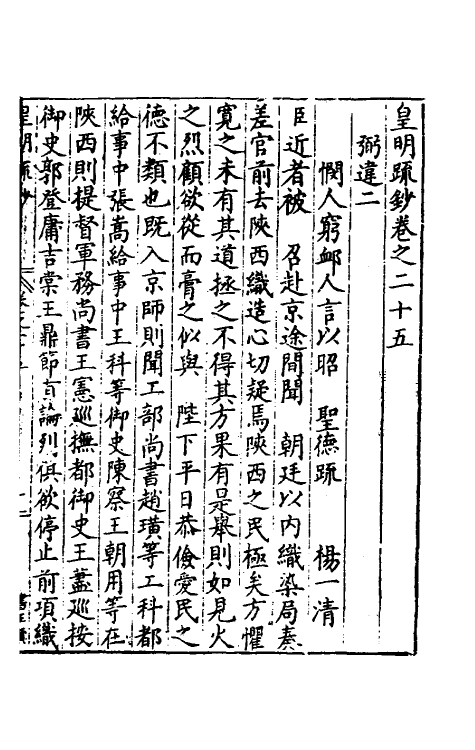 皇明疏鈔卷之二十五
弼違二
憫人窮卹人言以昭　聖德疏　楊一清
臣近者被　召赴京途間聞　朝廷以内織染局奏
差官前去陝西織造心切疑焉陝西之民極矣方懼
寛之未有其道拯之不得其方果有是舉則如見火
之烈顧欲從而膏之似與　陛下平日恭儉愛民之
德不類也既入京師則聞工部尚書趙璜等工科都
給事中張嵩給事中王科等御史陳察王朝用等在
陝西則提督軍務尚書王憲巡撫都御史王藎巡按
御史郭登庸吉棠王鼎節有論列俱欲停止前項織
皇明疏鈔